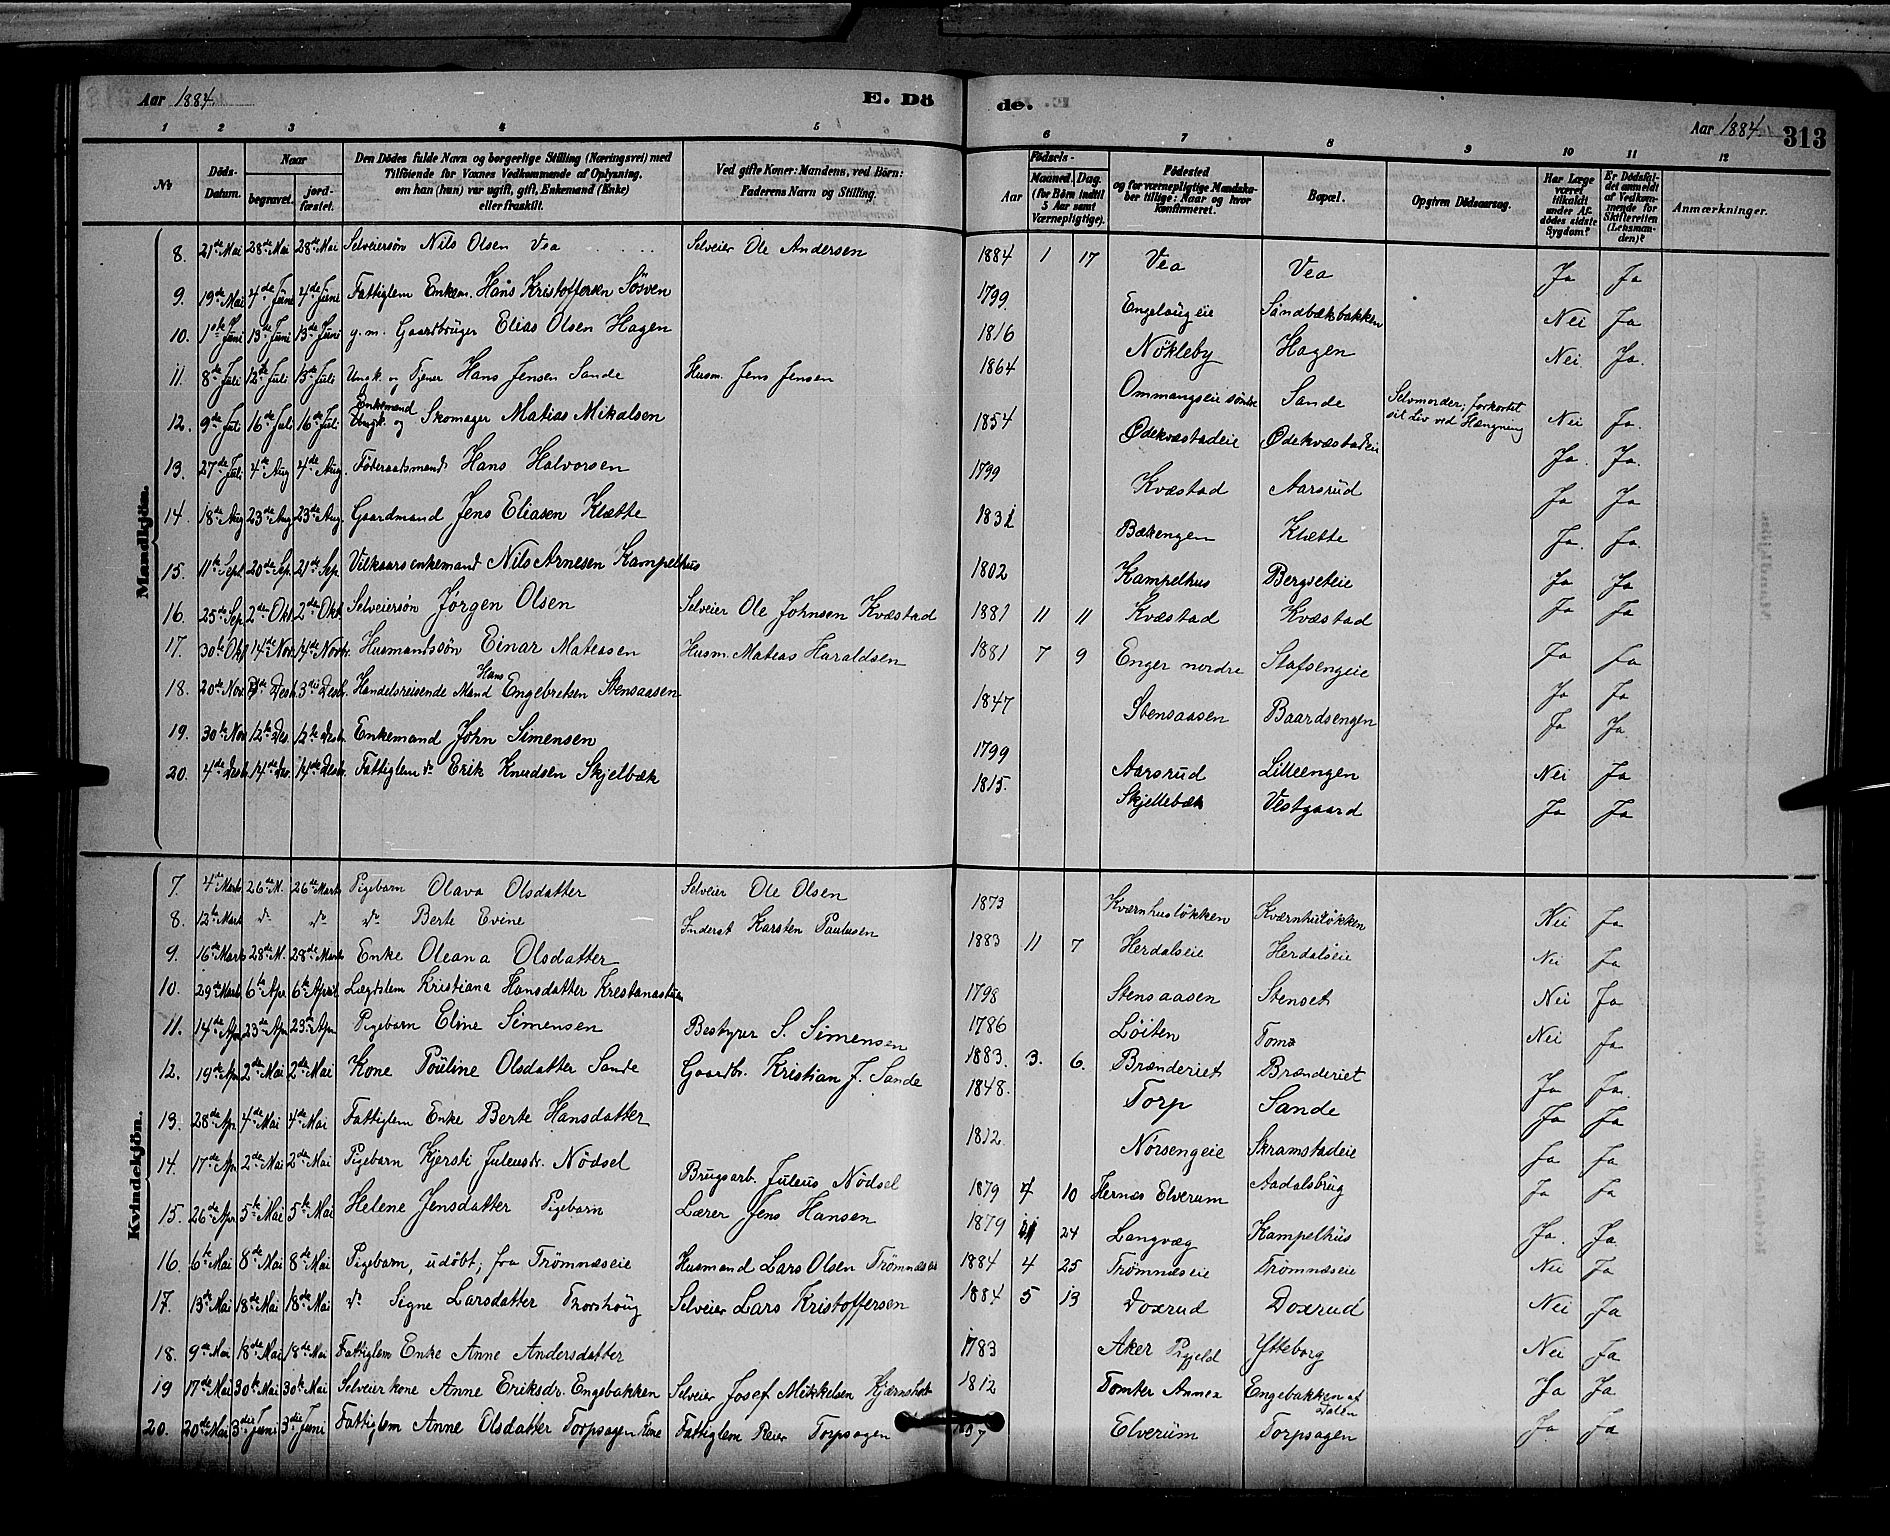 Aar 1884. E. Dö de. Aar 1884. 313
1 2 3 4 5 6 7 8 9 10 11 12
No
Döds-Datum.
Naar begravet. jordfæstet.
Den Dödes fulde Navn og borgerlige Stilling (Næringsvei) med
Tilföiende for Voxnes Vedkommende af Oplysning,
om han (hun) var ugift, gift, Enkemand (Enke)
eller fraskilt.
Ved gifte Koner: Mandens, ved Börn:
Faderens Navn og Stilling.
Födsels-
Aar Maaned. Dag.
(for Börn indtil 5 Aar samt Værnepligtige).
Födested
og for værnepligtige Mandskaber tillige: Naar og hvor konfirmeret.
Bopæl.
Opgiven Dödsaarsag.
Har Læge været tilkaldt under Afdödes sidste Sygdom?
Er Dödsfaldet anmeldt af Vedkommende for Skifteretten (Lensmanden)?
Anmærkninger.
Mandkjön.
8. 21de Mai 28de Mai 28de Mai Selveiersön Nils Olsen Vea Selveier Ole Andersen 1884 1 17 Vea Vea Ja Ja
9. 19de Mai 4de Juni 4de Juni Fattiglem Enkem. Hans Kristoffersen Sösven 1799. Engelaugeie Sandbækbakken Nei Ja
10. 1ste Juni 13de Juni 13de Juni g. m. Gaardbruger Elias Olsen Hagen 1816 Nökleby Hagen Nei Ja.
11. 8de Juli 12de Juli 13de Juli Ungk. og Tjener Hans Jensen Sande Husm. Jens Jensen 1864 Ommangseie söndre Sande Selvmorder; forkortet sit Liv ved Hængning Nei Ja.
12. 9de Juli 16de Juli 16de Juli Enkemand Ungk. og Skomager Matias Mikalsen 1854 Ødekvæstadeie Ødekvæstadeie Ja. Ja.
13. 27de Juli 4de Aug 4de Aug. Föderaadsmand Hans Halvorsen 1799 Kvæstad Aarsrud Ja Ja
14. 18de Aug 23de Aug 23de Aug. Gaardmand Jens Eliasen Klætte Bækengen Klætte Ja. Ja.
15. 11te Sept. 20de Sep. 21de Sep. Vilkaarsenkemand Nils Arnesen Kampelhus 1802 Kampelhus Bergseteie Ja Ja
16. 25de Sep. 2de Okt. 2de Okt. Selveiersön Jörgen Olsen Selveier Ole Johnsen Kvæstad 1881 11 11 Kvæstad Kvæstad Ja Ja
17. 30te Okt 14de Nov. 14de Novbr. Husmandssön Einar Mateasen Husm. Mateas Haraldsen 1881 7 9 Enger nordre Stafsengeie Ja Ja
18. 20de Nov. 3die Desb. 3die Desb. Handelsreisende Mand Hans Engebretsen Stensaasen 1847 Stensaasen Baardsengen Ja Ja
19. 30te Nov 12te Des. 12te Desb. Enkemand John Simensen 1799 Aarsrud Lilleengen Ja Ja
20. 4de Desb. 14de Des. 14de Desbr. Fattiglem do Erik Knudsen Skjelbæk 1815. Skjellebæk Vestgaard Nei Ja
Ja Ja
Kvindekjön.
7. 4de Marts 26de M. 26de Marts Pigebarn Olava Olsdatter Selveier Ole Olsen 1873 Kværnhuslökken Kværnhuslökken Nei Ja
8. 12te Marts do do do Berte Evine Inderst Karsten Paulusen 1883 11 7 Herdalseie Herdalseie Nei Ja
9. 16de Marts 28de M. 28de Marts Enke Oleana Olsdatter 1798 Stensaasen Stenset Nei Ja
10. 29de Marts 6te Apr. 6te April Lægdslem Kristiana Hansdatter 1786 Löiten Tomr Nei Ja
11. 14de Apr 23de Apr 23de Apr Pigebarn Eline Simensen Bestyrer S. Simensen 1883. 3. 6. Brænderiet Brænderiet Ja Ja.
12. 19de Apr 2de Mai 2de Mai Kone Pouline Olsdatter Sande Gaardbr. Kristian J. Sande 1848. Torp Sande Ja Ja
13. 28de Apr 4de Mai 4de Mai Fattiglem Enke Berte Hansdatter 1812. Nörsengeie Skramstadeie Ja Ja
14. 17de Apr 2de Mai 2de Mai Pigebarn Kjersti Juleusdr. Nödsel Brugsarb. Juleus Nödsel 1879 7 10 Hernes Elverum Aadalsbrug Ja Ja
15. 26de Apr 5te Mai 5te Mai Helene Jensdatter Pigebarn Lærer Jens Hansen 1879 11 24 Langvæg Kampelhus Ja. Ja
16. 6te Mai 8de Mai 8de Mai Pigebarn, udöbt, fra Trömnæseie Husmand Lars Olsen Trömnæseie 1884 4 25 Trömnæseie Trömnæseie Nei Ja
17. 13de Mai 18de Mai 18de Mai do Signe Larsdatter Thorshoug Selveier Lars Kristoffersen 1884 5 13 Doxrud Doxrud Nei Ja
18. 9de Mai 18de Mai 18de Mai Fattiglem Enke Anne Andersdatter 1783 Aker Prgjeld Ytteborg Nei Ja
19 17de Mai 30te Mai 30te Mai Selveierkone Anne Eriksdr. Engebakken Selveier Josef Mikkelsen 1812 Tomter Annex Engebakken af Dalen Ja Ja
20. 20de Mai 3die Juni 3die Juni Fattiglem Anne Olsdatter Torpsagen Fattiglem Peier Torpsagen Elverum Torpsagen Ja Ja